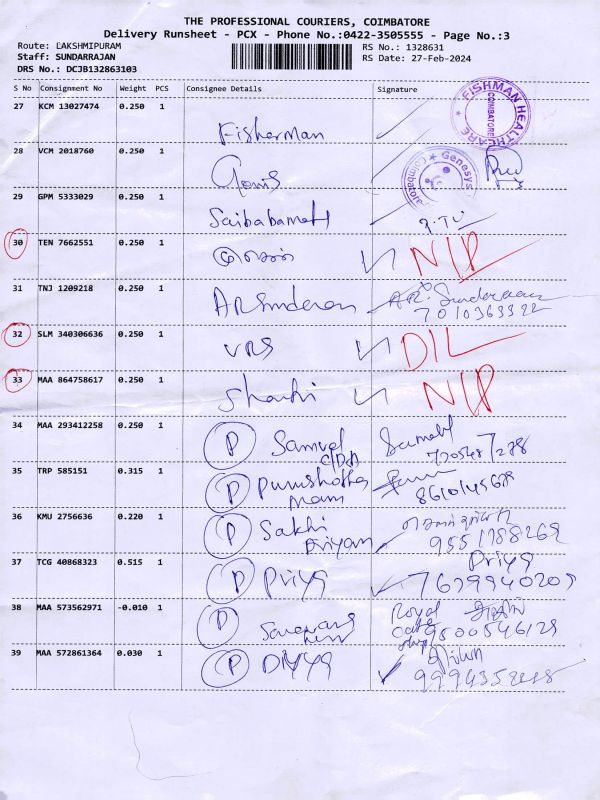 THE PROFESSIONAL COURIERS, COIMBATORE
Delivery Runsheet - PCX - Phone No.:0422-3505555 - Page No.:3
Route: LAKSHMIPURAM
RS No.: 1328631
Staff: SUNDARRAJAN
RS Date: 27-Feb-2024
DRS No.: DCJB132863103
S No Consignment No Weight PCS Consignee Details Signature
27 KCM 13027474 0.250 1
Fisherman
FISHMAN HEALTHCARE
COIMBATORE
28 VCM 2018760 0.250 1
Genesys
Coimbatore
29 GPM 5333029 0.250 1
30 TEN 7662551 0.250 1
N/P
31 TNJ 1209218 0.250 1
AR Sunderan
AR. Sundaraan
7010363322
32 SLM 340306636 0.250 1
VRS
D/L
33 MAA 864758617 0.250 1
N/P
34 MAA 293412258 0.250 1
P Samuel
35 TRP 585151 0.315 1
P
36 KMU 2756636 0.220 1
P Sakhi
Priyan
9551788269
37 TCG 40868323 0.515 1
P Priya
Priya
7639940209
38 MAA 573562971 -0.010 1
P
Royal
9500546129
39 MAA 572861364 0.030 1
P Divya